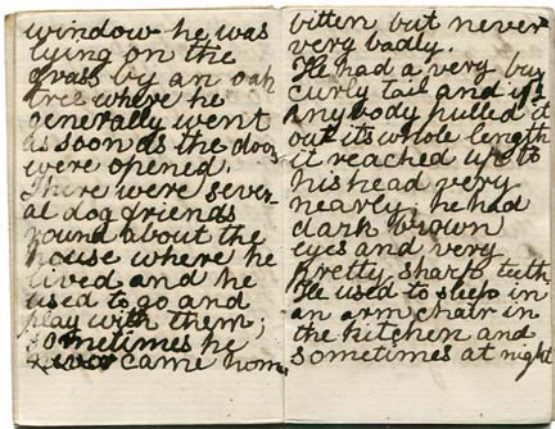 window he was
lying on the
grass by an oak
tree where he
generally went
as soon as the doors
were opened.
There were sever-
al dog friends
round about the
house where he
lived and he
used to go and
play with them;
sometimes he
never came home
bitten but never
very badly.
He had a very
curly tail and if
anybody pulled it
out its whole length
it reached up to
his head very
nearly; he had
dark brown
eyes and very
pretty sharp teeth.
He used to sleep in
an arm chair in
the kitchen and
sometimes at night